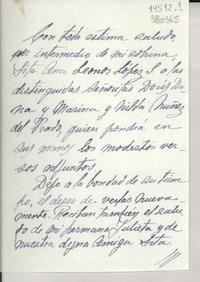 14512.1
980365
Con toda estima saludo
por intermedio de mi sobrina
Srta Ana Leonor López S. a las
distinguidas Señoritas Doris Da
na y Marina y Nilda Núñez
del Prado, quien pondrá en
sus manos los modestos ver
sos adjuntos.
Dejo a la bondad de su tiem
po, el deseo de verlas nueva-
mente. Reciban también el salu
do de mi hermana Julieta y de
nuestra digna Amiga Srta.